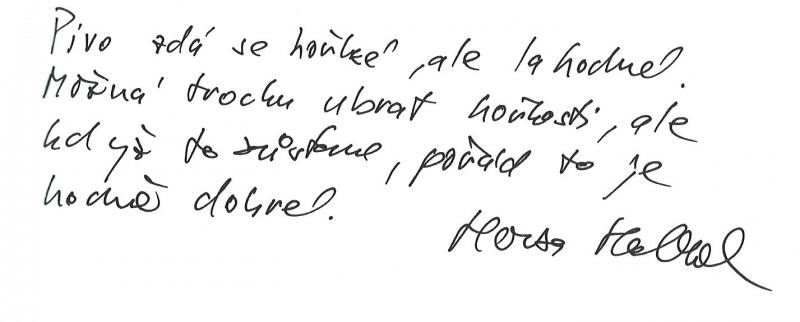 Pivo zdá se hořké, ale lahodné.
Možná trochu ubrat hořkosti, ale
když to zůstane, pořád to je
hodně dobré.